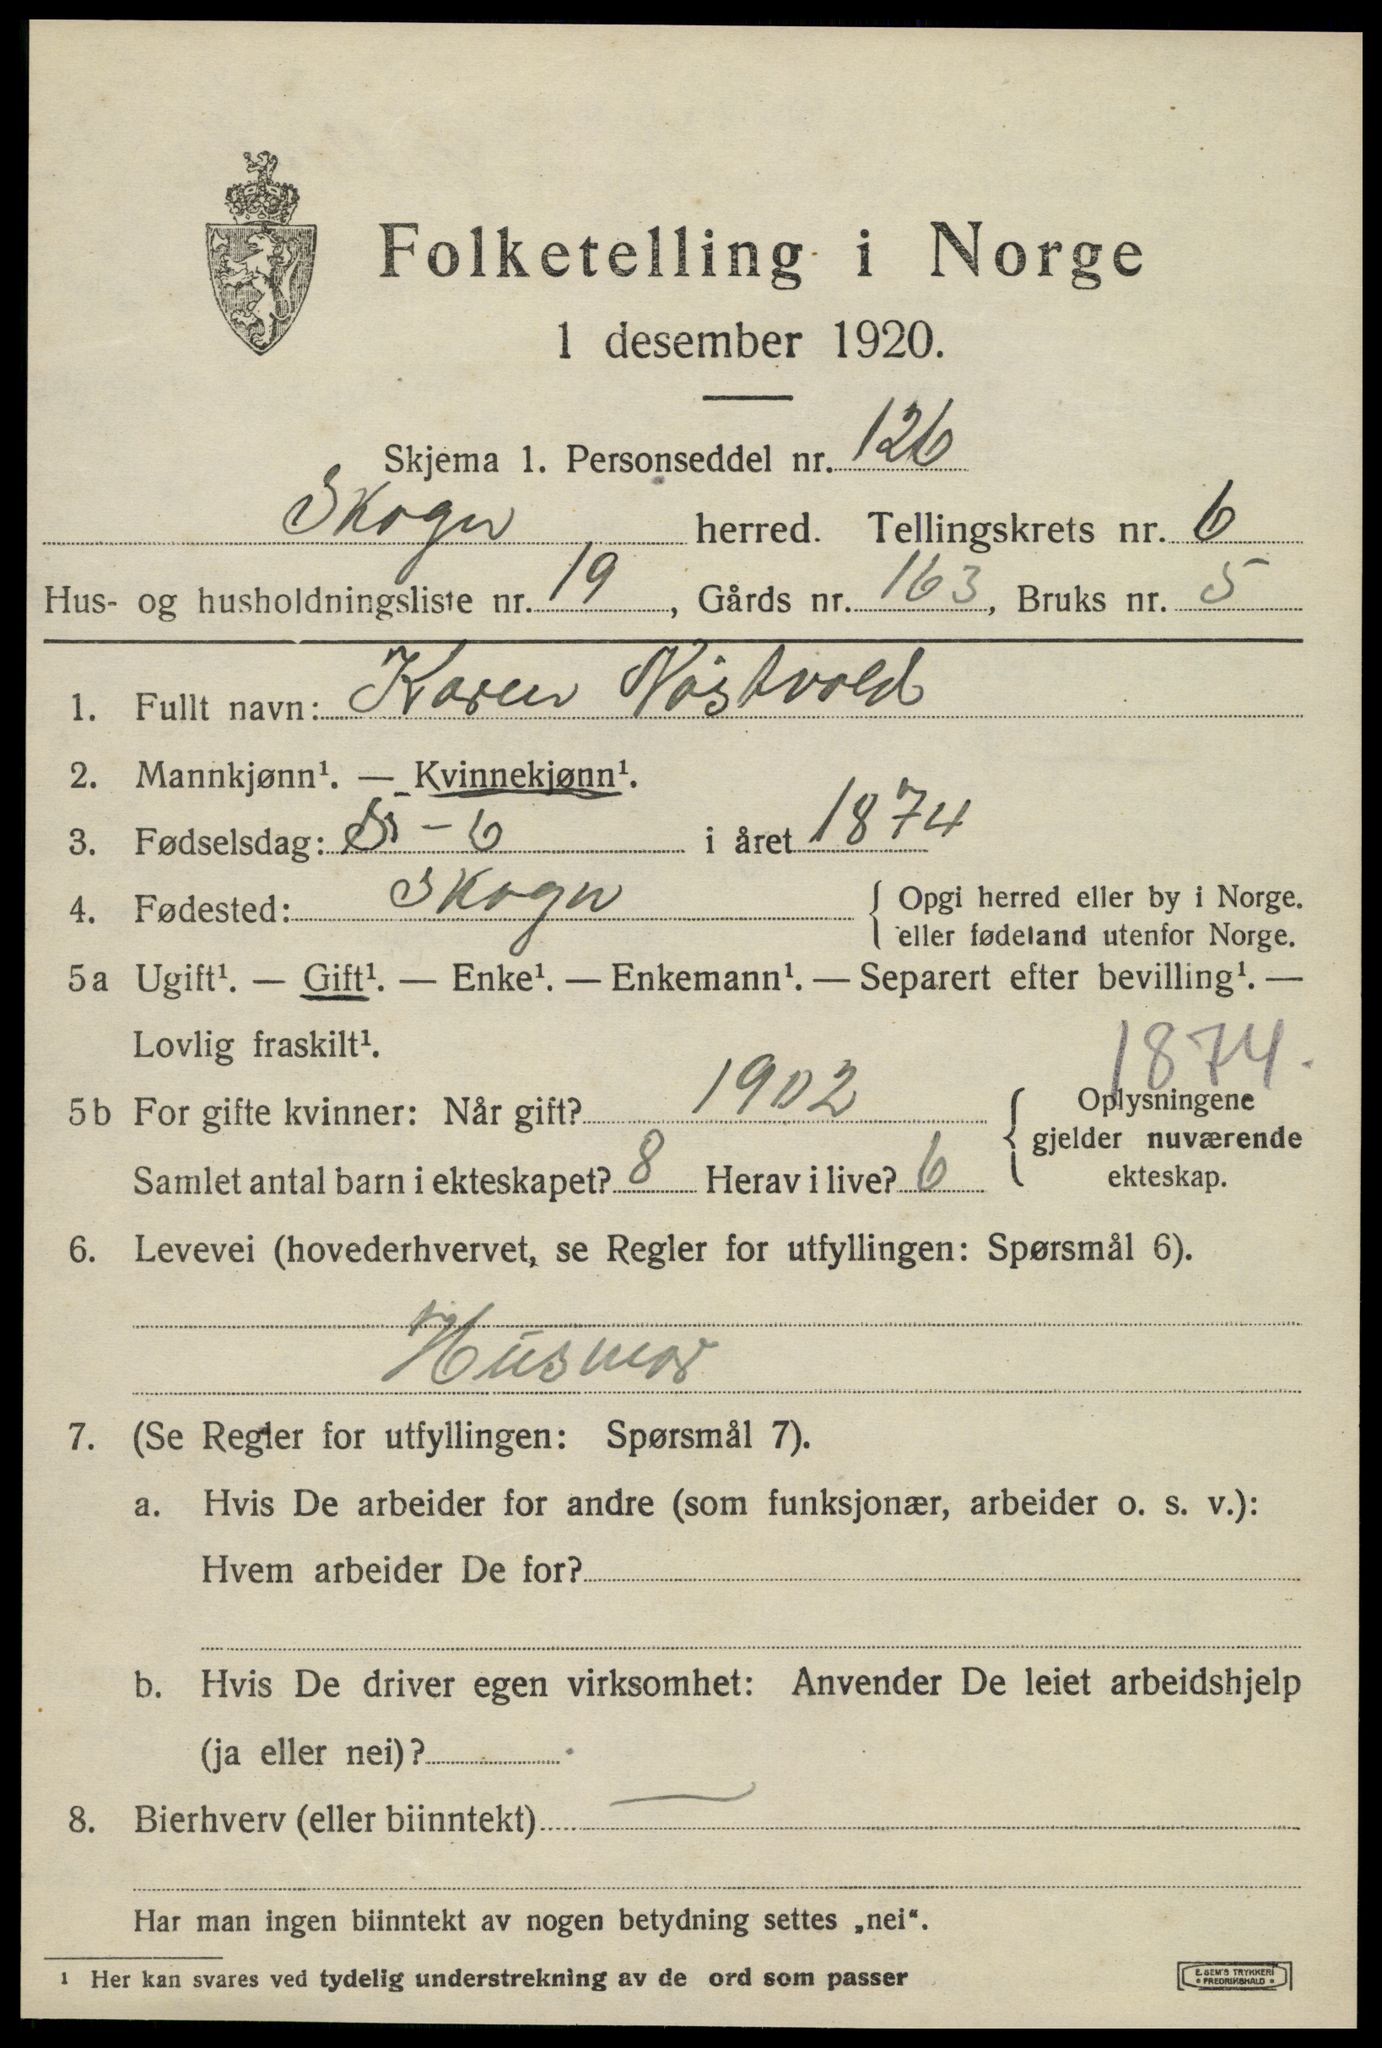 Folketelling i Norge
1 desember 1920.
Skjema 1. Personseddel nr. 126
Skogn herred. Tellingskrets nr. 6
Hus- og husholdningsliste nr. 19, Gårds nr. 163, Bruks nr. 5
1. Fullt navn: Karen Nöstvold
2. Mannkjønn¹. — Kvinnekjønn¹.
3. Fødselsdag: - 6 i året 1874
4. Fødested: Skogn { Opgi herred eller by i Norge.
eller fødeland utenfor Norge.
5a Ugift¹. — Gift¹. — Enke¹. — Enkemann¹. — Separert efter bevilling¹. —
Lovlig fraskilt¹.
1874.
5b For gifte kvinner: Når gift? 1902 { Oplysningene
gjelder nuværende
Samlet antal barn i ekteskapet? 8 Herav i live? 6 ekteskap.
6. Levevei (hovederhvervet, se Regler for utfyllingen: Spørsmål 6).
Husmor
7. (Se Regler for utfyllingen: Spørsmål 7).
a. Hvis De arbeider for andre (som funksjonær, arbeider o. s. v.):
Hvem arbeider De for?
b. Hvis De driver egen virksomhet: Anvender De leiet arbeidshjelp
(ja eller nei)?
8. Bierhverv (eller biinntekt) —
Har man ingen biinntekt av nogen betydning settes „nei“.
¹ Her kan svares ved tydelig understrekning av de ord som passer
E. SEM'S TRYKKERI
FREDRIKSHALD